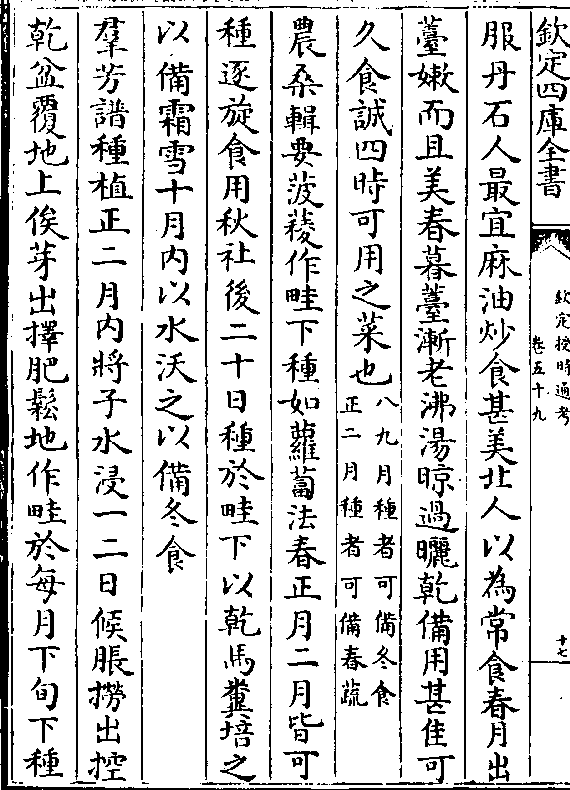 欽定四庫全書
欽定授時通考
卷五十九
十七
服丹石人最宜麻油炒食甚美北人以為常食春月出
薹嫩而且美春暮薹漸老沸湯晾過曬乾備用甚佳可
久食誠四時可用之菜也八九月種者可備冬食
正二月種者可備春蔬
農桑輯要菠薐作畦下種如蘿蔔法春正月二月皆可
種逐旋食用秋社後二十日種於畦下以乾馬糞培之
以備霜雪十月内以水沃之以備冬食
羣芳譜種植正二月内將子水浸一二日候脹撈出控
乾盆覆地上俟芽出擇肥鬆地作畦於每月下旬下種